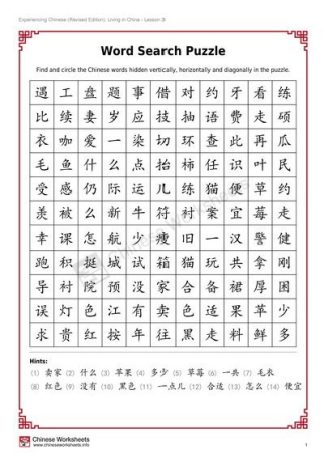 Experiencing Chinese (Revised Edition), Living in China - Lesson 3I
Word Search Puzzle
Find and circle the Chinese words hidden vertically, horizontally and diagonally in the puzzle.
遇 工 盘 题 事 借 对 约 牙 看 练
比 续 妻 岁 应 技 抽 语 费 走 硕
衣 咖 爱 一 染 切 环 查 此 再 瓜
毛 鱼 什 么 点 抬 柿 任 识 叶 民
受 感 仍 际 运 儿 练 猫 便 草 约
羡 被 么 新 牛 符 衬 案 宜 莓 走
幸 课 怎 航 少 瘦 旧 一 汉 警 健
跑 积 挺 城 试 箱 猫 玩 共 拿 刚
导 衬 院 预 没 家 合 备 裙 厚 困
误 灯 色 江 有 卖 色 适 果 苹 少
求 贵 红 按 年 往 黑 走 料 鲜 多
Hints:
(1) 卖家 (2) 什么 (3) 苹果 (4) 多少 (5) 草莓 (6) 一共 (7) 毛衣
(8) 红色 (9) 没有 (10) 黑色 (11) 一点儿 (12) 合适 (13) 怎么 (14) 便宜
Chinese Worksheets
www.chineseworksheets.info
1
Chinese Worksheets